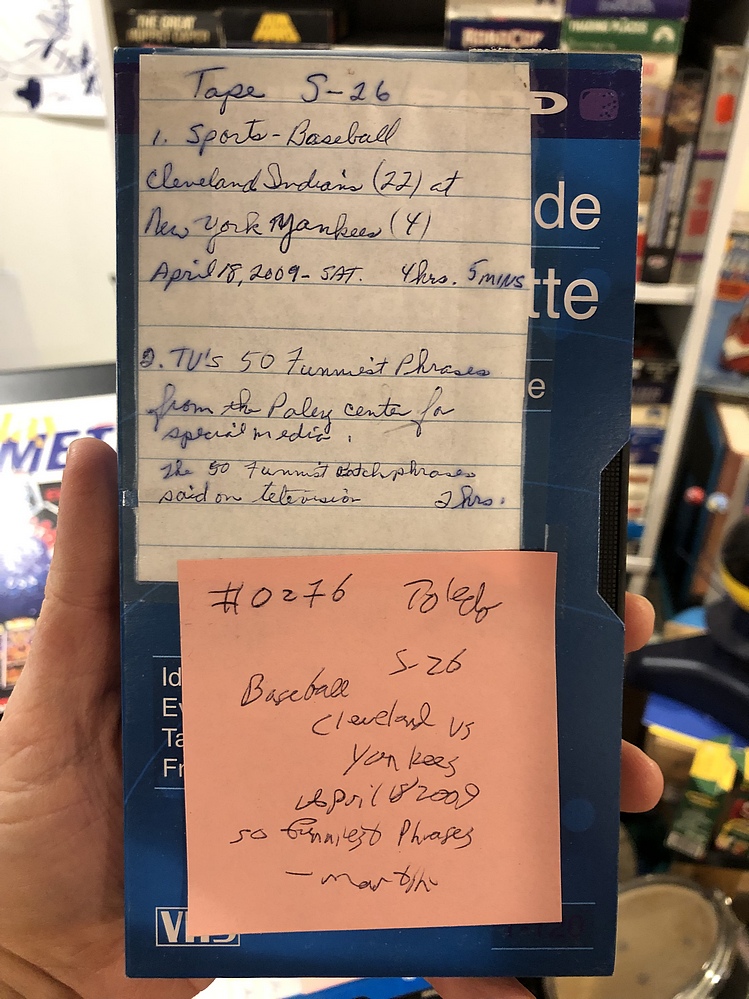 THE GREAT
MUPPET CAPER
ROBOCOP
TRADING PLACES
Tape S-26
1. Sports - Baseball
Cleveland Indians (22) at
New York Yankees (4)
April 18, 2009 - SAT. 4hrs. 5 MINS
2. TV's 50 Funniest Phrases
from the Paley center for
special media.
The 50 Funnist Catchphrases
said on television 2 hrs.
D
de
tte
e
MET
#0276 Toledo
S-26
Baseball
Cleveland vs
Yankees
April 18 2009
50 Funniest Phrases
Id
Ev
Ta
Fr
VHS